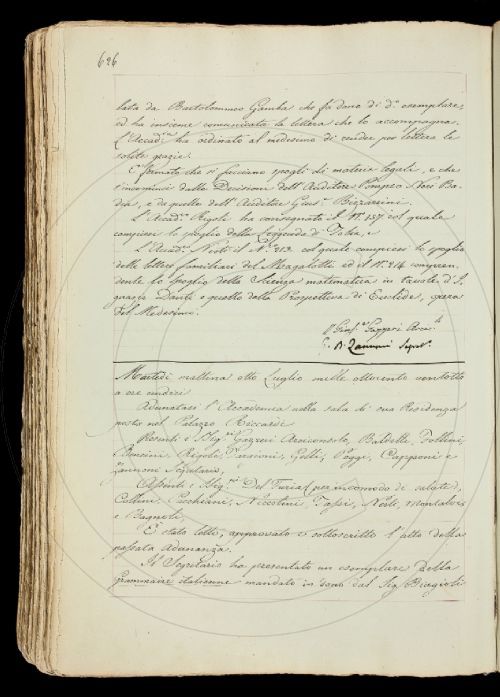 626
lata da Bartolommeo Gamba che fa dono di d.º esemplare,
ed ha insieme comunicata la lettera che lo accompagna.
L'Accad.ª ha ordinato al medesimo di render per lettera le
solite grazie.
È fermato che si facciano spogli di materie legali, e che
s'incominci dalle Decisioni dell'Auditore Pompeo Neri Ba-
dia, e da quelle dell'Auditore Gius.e Bizzarrini.
L'Accad.º Rigoli ha consegnato il N.º 157 col quale
compiesi lo spoglio della Leggenda di Tobia, e
L'Accad.º Nesti il N.º 213 col quale compiesi lo spoglio
delle lettere familiari del Magalotti ed il N.º 214 compren-
dente lo spoglio della Scienza matematica in tavole d'I-
gnazio Danti e quello della Prospettiva di Euclide, opera
del Medesimo.
Gius.e Gazzeri Arcic.lo
G. B. Zannoni Segret.º
Martedì mattina otto Luglio mille ottocento ventotto
a ore undici
Adunatasi l'Accademia nella sala di sua Residenza
posta nel Palazzo Riccardi
Presenti i Sig.ri Gazzeri Arciconsolo, Baldelli, Follini,
Bencini, Rigoli, Targioni, Gelli, Poggi, Capponi e
Zannoni Segretario,
Assenti i Sig.ri Del Furia (per incomodo di salute),
Collini, Cacchiani, Niccolini, Tassi, Nesti, Montalvi
e Bagnoli,
È stato letto, approvato e sottoscritto l'atto della
passata Adunanza.
Il Segretario ha presentato un esemplare Della
Grammaire italienne mandato in dono dal Sig. Biagioli